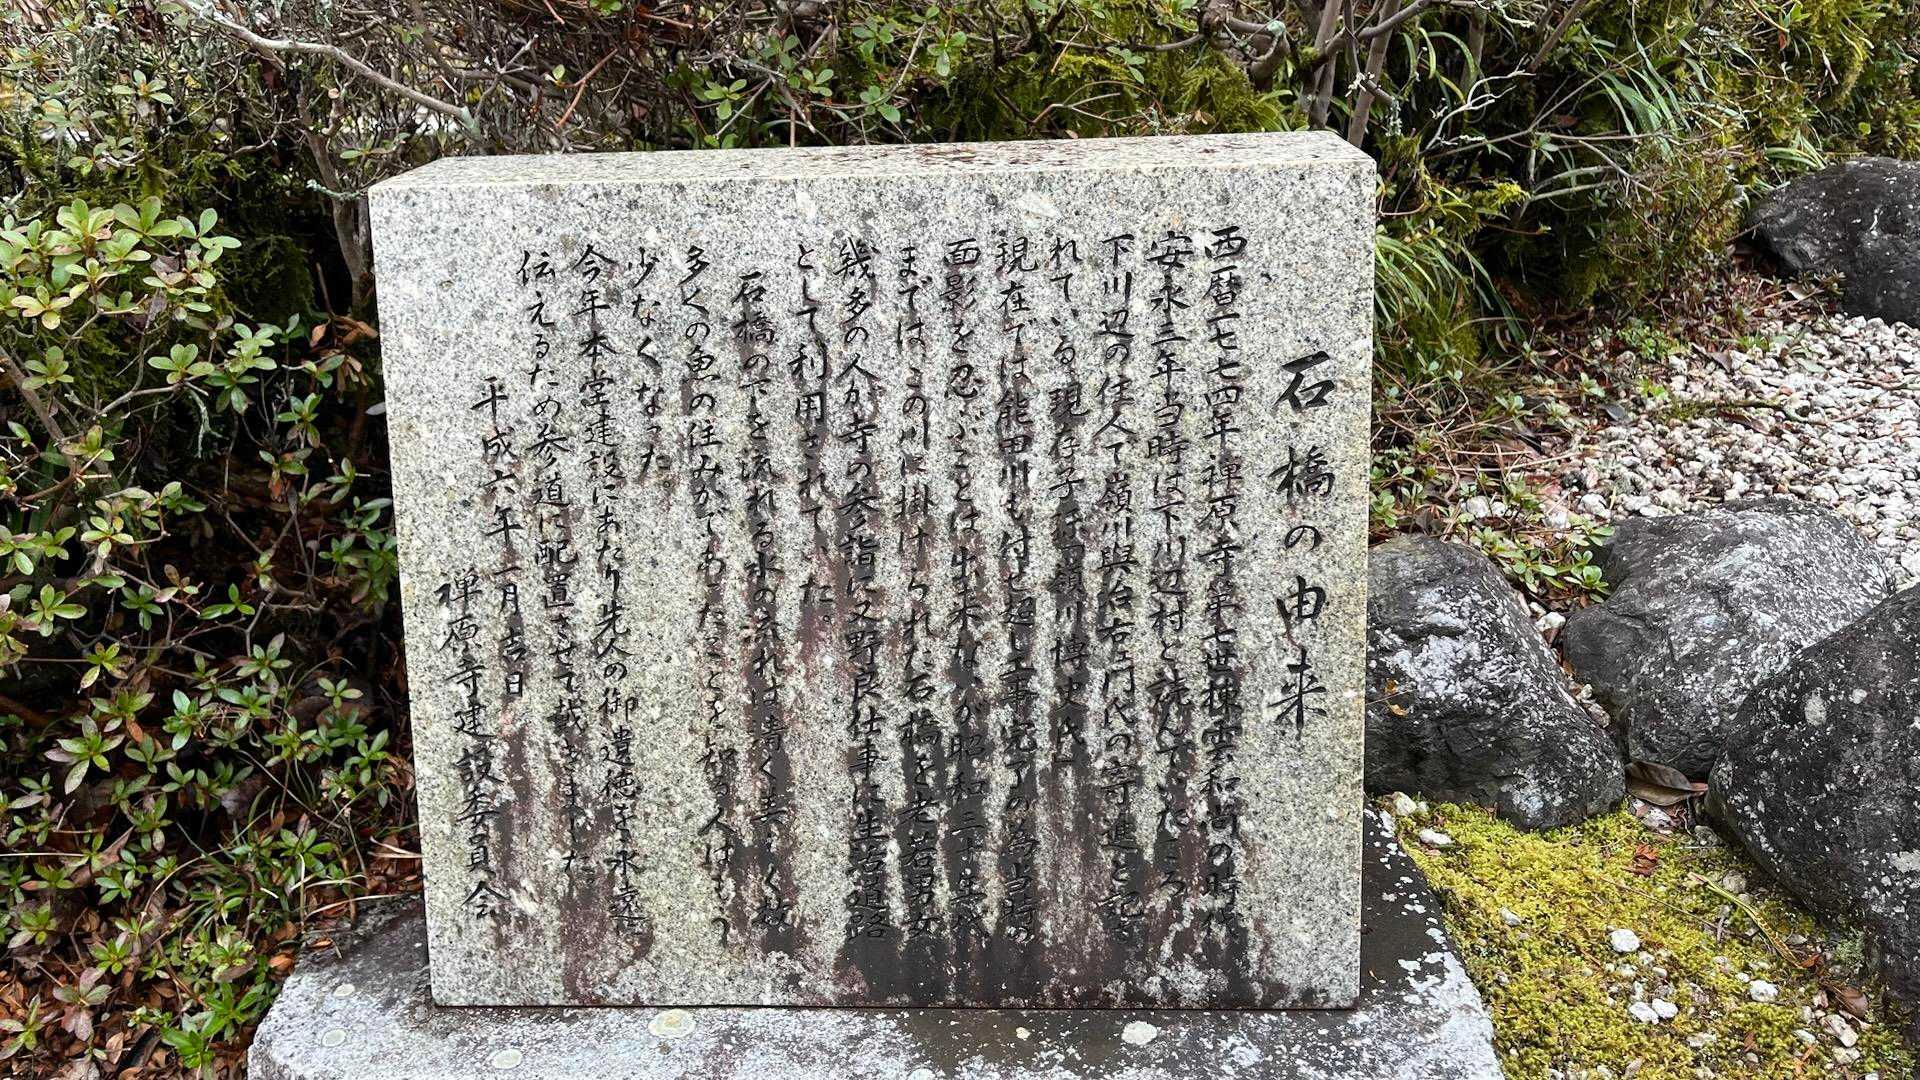 石橋の由来
西暦一七七四年禅原寺第七世棟雲和尚の時代
安永三年当時は下川辺村と読んでいたころ
下川辺の住人で嶺川與治右ェ門氏の寄進と記さ
れている現存子孫嶺川博史氏
現在では能田川も付せ超し工事完了の為当時の
面影を忍ぶことは出来ないが昭和三十年代
まではこの川に掛けられた石橋を老若男女
幾多の人が寺の参詣に又野良仕事に生活道路
として利用されていた。
石橋の下を流れる水の流れは清く美しく故
多くの魚の住みかであったことを知る人はもう
少なくなった。
今年本堂建設にあたり先人の御遺徳を永遠
伝えるため参道に配置させて戴きました
平成六年一月吉日
禅原寺建設委員会